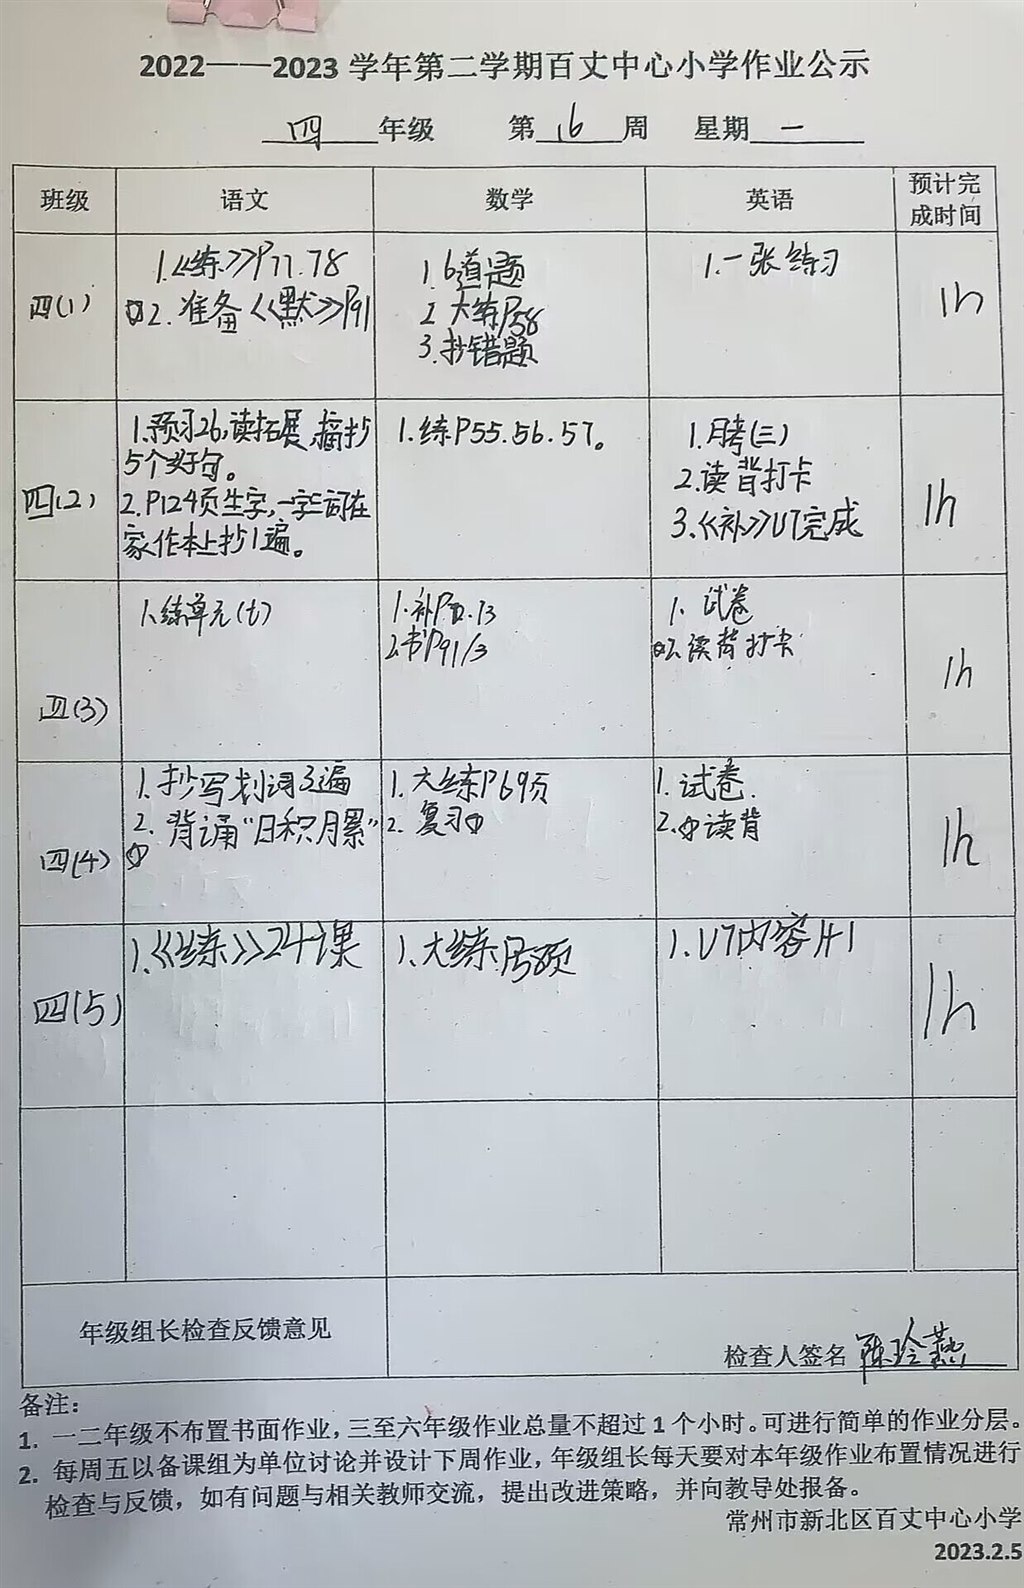 2022——2023 学年第二学期百丈中心小学作业公示
四 年级 第 16 周 星期 一
班级 语文 数学 英语 预计完
成时间
四(1)
1.《练》P77.78
2. 准备《默》P91
1. 6道题
2. 大练P58
3. 抄错题
1. 一张练习
1h
四(2)
1.预习26,读拓展,摘抄
5个好句。
2.P124页生字,一字三词在
家作本上抄1遍。
1.练P55.56.57。
1.月考(三)
2.读背打卡
3.《补》U7完成
1h
四(3)
1.练单元(七)
1.补P.13
2.书P91/3
1. 试卷
2.读背打卡
1h
四(4)
1. 抄写划词3遍
2. 背诵“日积月累”
1. 大练P69页
2. 复习
1. 试卷.
2. 读背
1h
四(5)
1.《练》24课
1.大练P58页
1. U7内容1+1
1h
年级组长检查反馈意见
检查人签名 陈玲燕
备注:
1. 一二年级不布置书面作业,三至六年级作业总量不超过 1 个小时。可进行简单的作业分层。
2. 每周五以备课组为单位讨论并设计下周作业,年级组长每天要对本年级作业布置情况进行
检查与反馈,如有问题与相关教师交流,提出改进策略,并向教导处报备。
常州市新北区百丈中心小学
2023.2.5